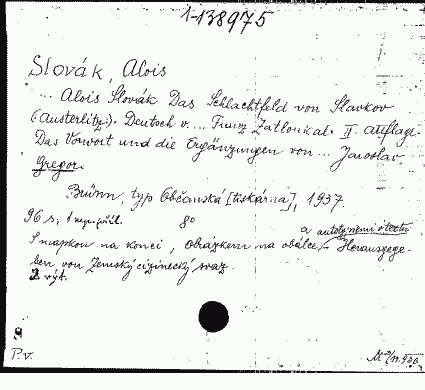 1-138975
Slovák, Alois
... Alois Slovák Das Schlachtfeld von Slavkov
(:Austerlitz:). Deutsch v. ... Franz Zatloukal. II. Auflage
Das Vorwort und die Ergänzungen von ... Jaroslav
Gregor.
Brünn, typ Občanská [tiskárna], 1937
96 s, 1 8°
a autotypiemi v textu
S mapkou na konci, obrázkem na obálce, Herausgege-
ben von Zemský cizinecký svaz.
2 výt.
9
P.v.